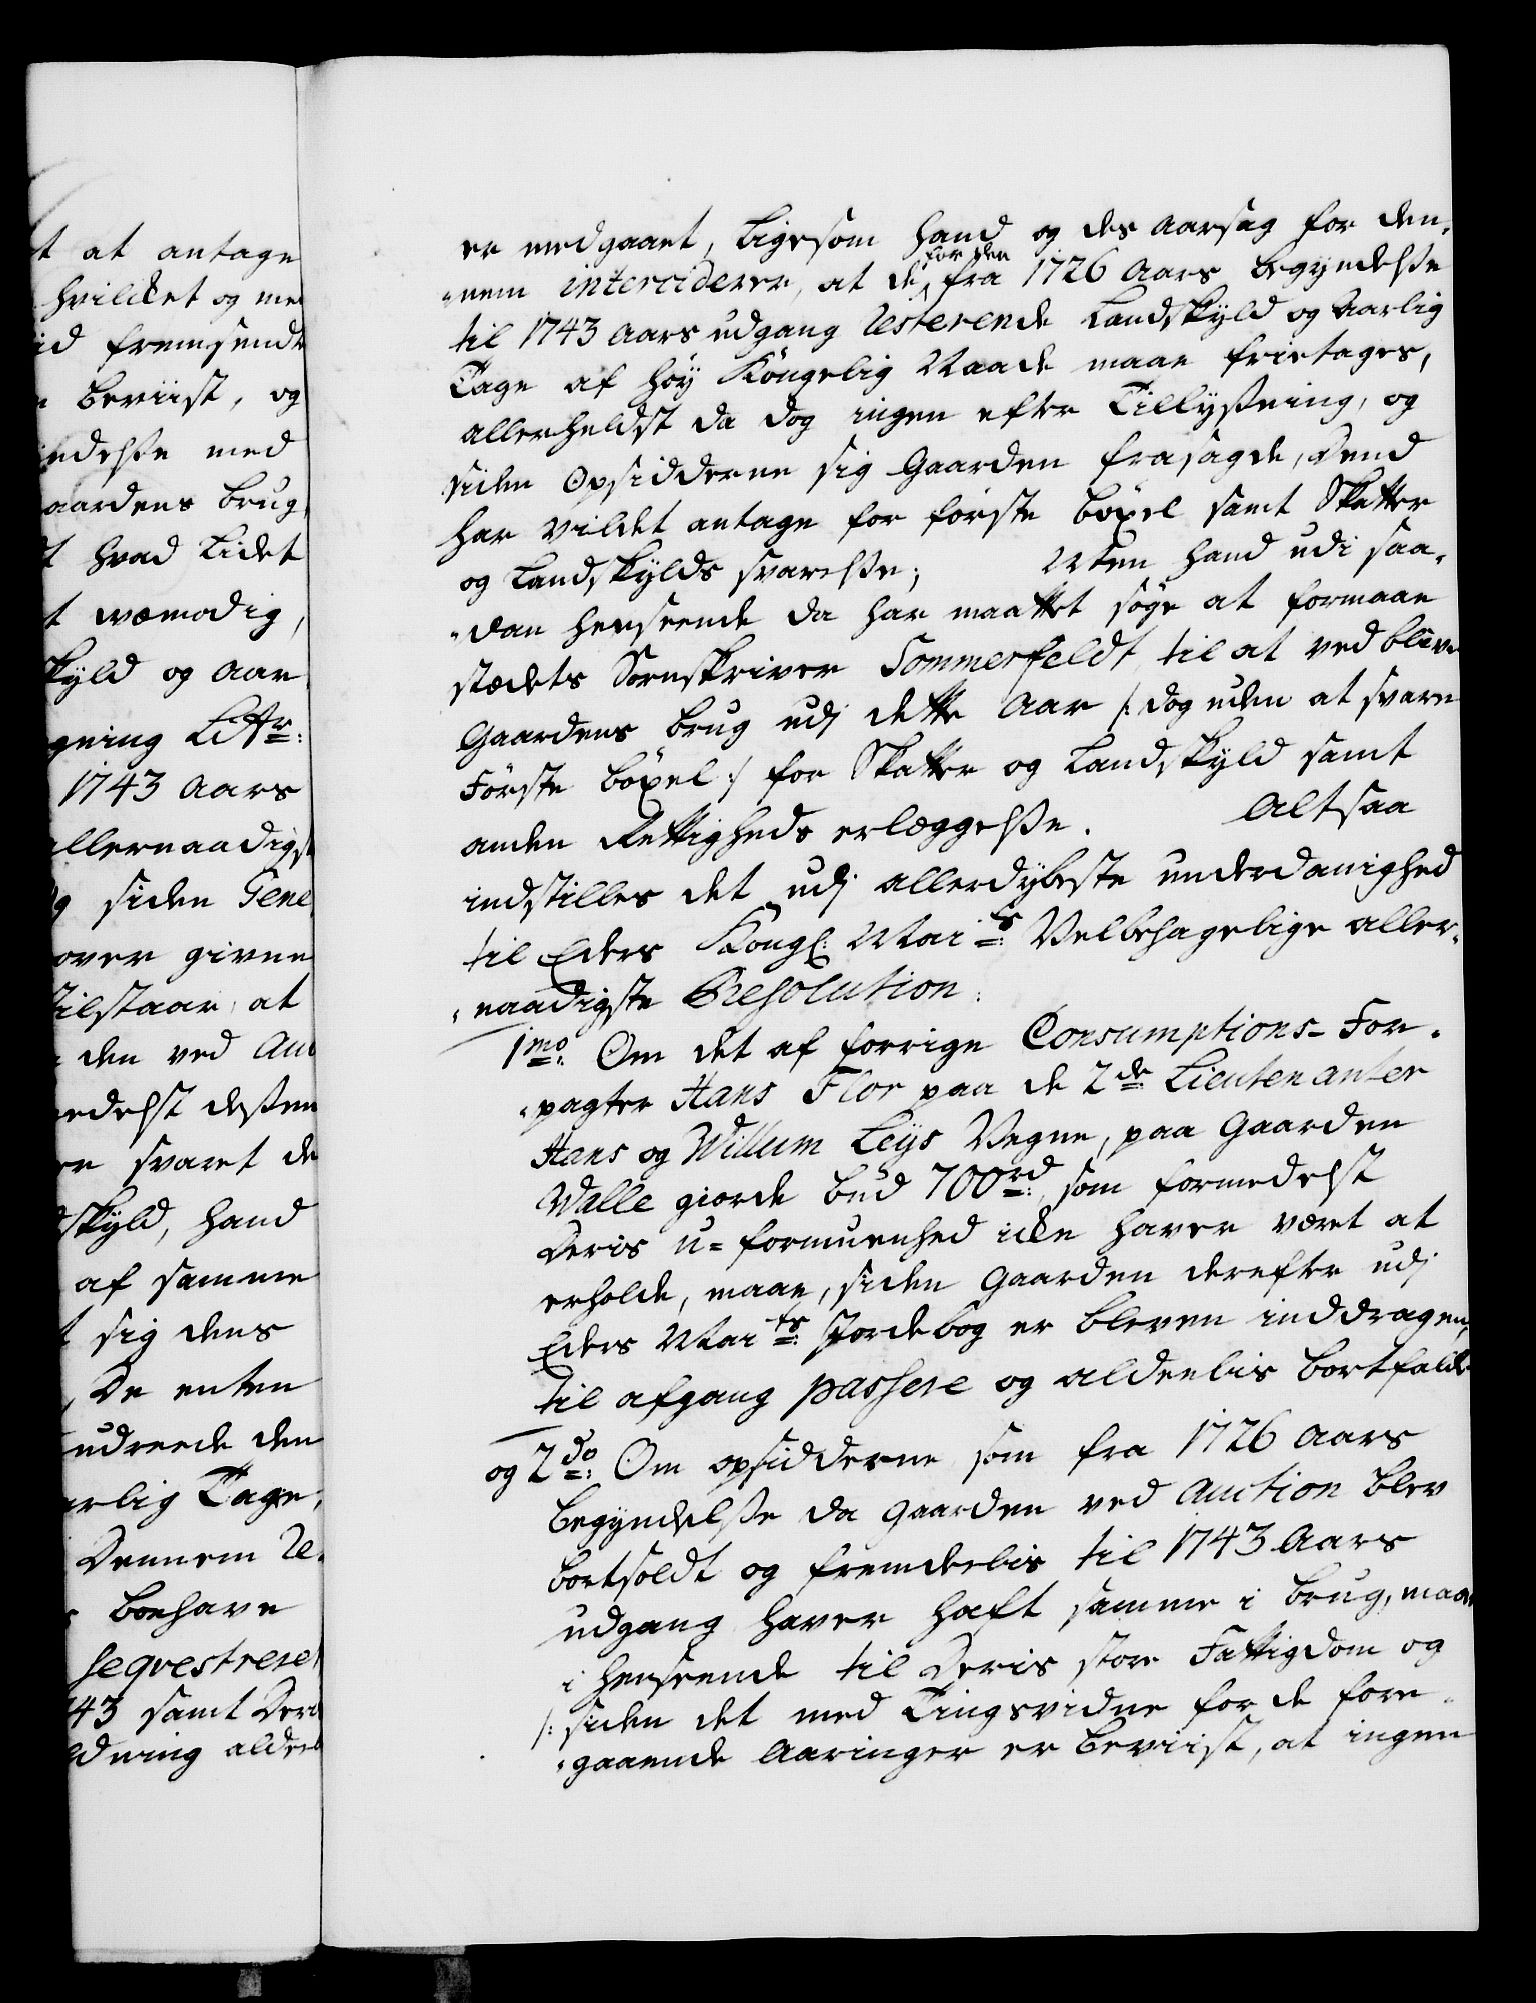 t at antage
hvilcket og me
id fremsendt
beviist, og
edelsse med
aardens brug
t hvad Lidet
t wæmodig,
kyld og Aar
gning Litr:
1743 Aars
llernaadigst
g siden Gene
over givne
tilstaar at
den ved Auc
edelst dessen
er svaret de
dskyld, hand
af samme
t sig dens
De enten
udreede den
arlig Tage,
Dennem Re-
boehave
seqvestrere
43 samt Der
dning aldee
er medgaaet, Ligesom hand og des aarsag for den-
nem intercederer, at de for den fra 1726 Aars begyndelsse
til 1743 Aars udgang Resterende Landskyld og Aarlig
Tage af høy Kongelig Naade maae frietages,
allerheldst da dog ingen efter Tillysning, og
siden Opsidderne sig Gaarden frasagde, Dend
har vildet antage for første böxel samt Skatter
og Landskylds svarelsse; Men hand udi saa-
dan henseende da har maattet søge at formaae
stædets Sorenskriver Sommerfeldt til at ved blive
Gaardens brug udj dette Aar /: dog uden at svare
Første böxel :/ for Skatter og Landskyld samt
anden Rettigheds erlæggelsse. Altsaa
indstilles det udj allerdybeste underdanighed
til Eders Kongl: Maits: Velbehagelige aller-
naadigste Resolution:
1mo: Om det af forrige Consumptions-For-
pagter Hans Flor paa de 2de Lieutenanter
Hans og Willum Leijs Vegne, paa Gaarden
Walle giorde bud 700rd:, som formedelst
Deris u-formuenhed icke haver været at
erholde, maae, siden Gaarden derefter udj
Eders Maits: Jordebog er bleven inddragen,
til afgang passere og aldeelis bortfalde
og 2do: Om opsidderne som fra 1726 Aars
begyndelsse da Gaarden ved Auction blev
bortsoldt og fremdeelis til 1743 Aars
udgang haver haft samme i brug, maae
i henseende til Deris store Fattigdom og
/: siden det med Tingsvidne for de fore-
gaaende Aaringer er beviist, at ingen